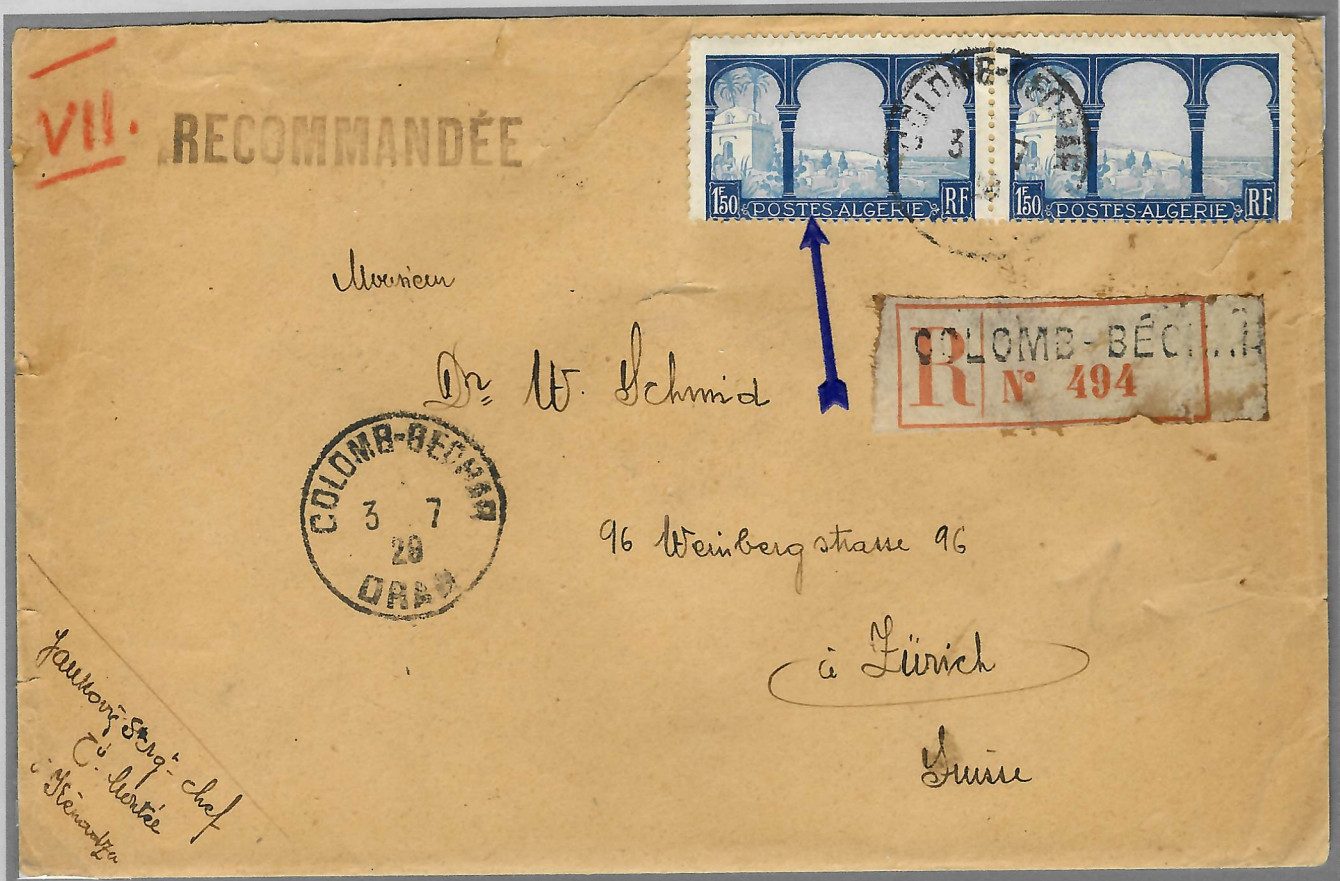 VII.
RECOMMANDÉE
1F50 POSTES-ALGERIE RF
1F50 POSTES-ALGERIE RF
COLOMB-BECHAR
3 7
Monsieur
COLOMB-BÉCHAR
R N° 494
Dr. W. Schmid
COLOMB-BECHAR
3 7
29
ORAN
96 Weinbergstrasse 96
à Zürich
Suisse
Sergt- chef
Cie. Montée
à Kénadza